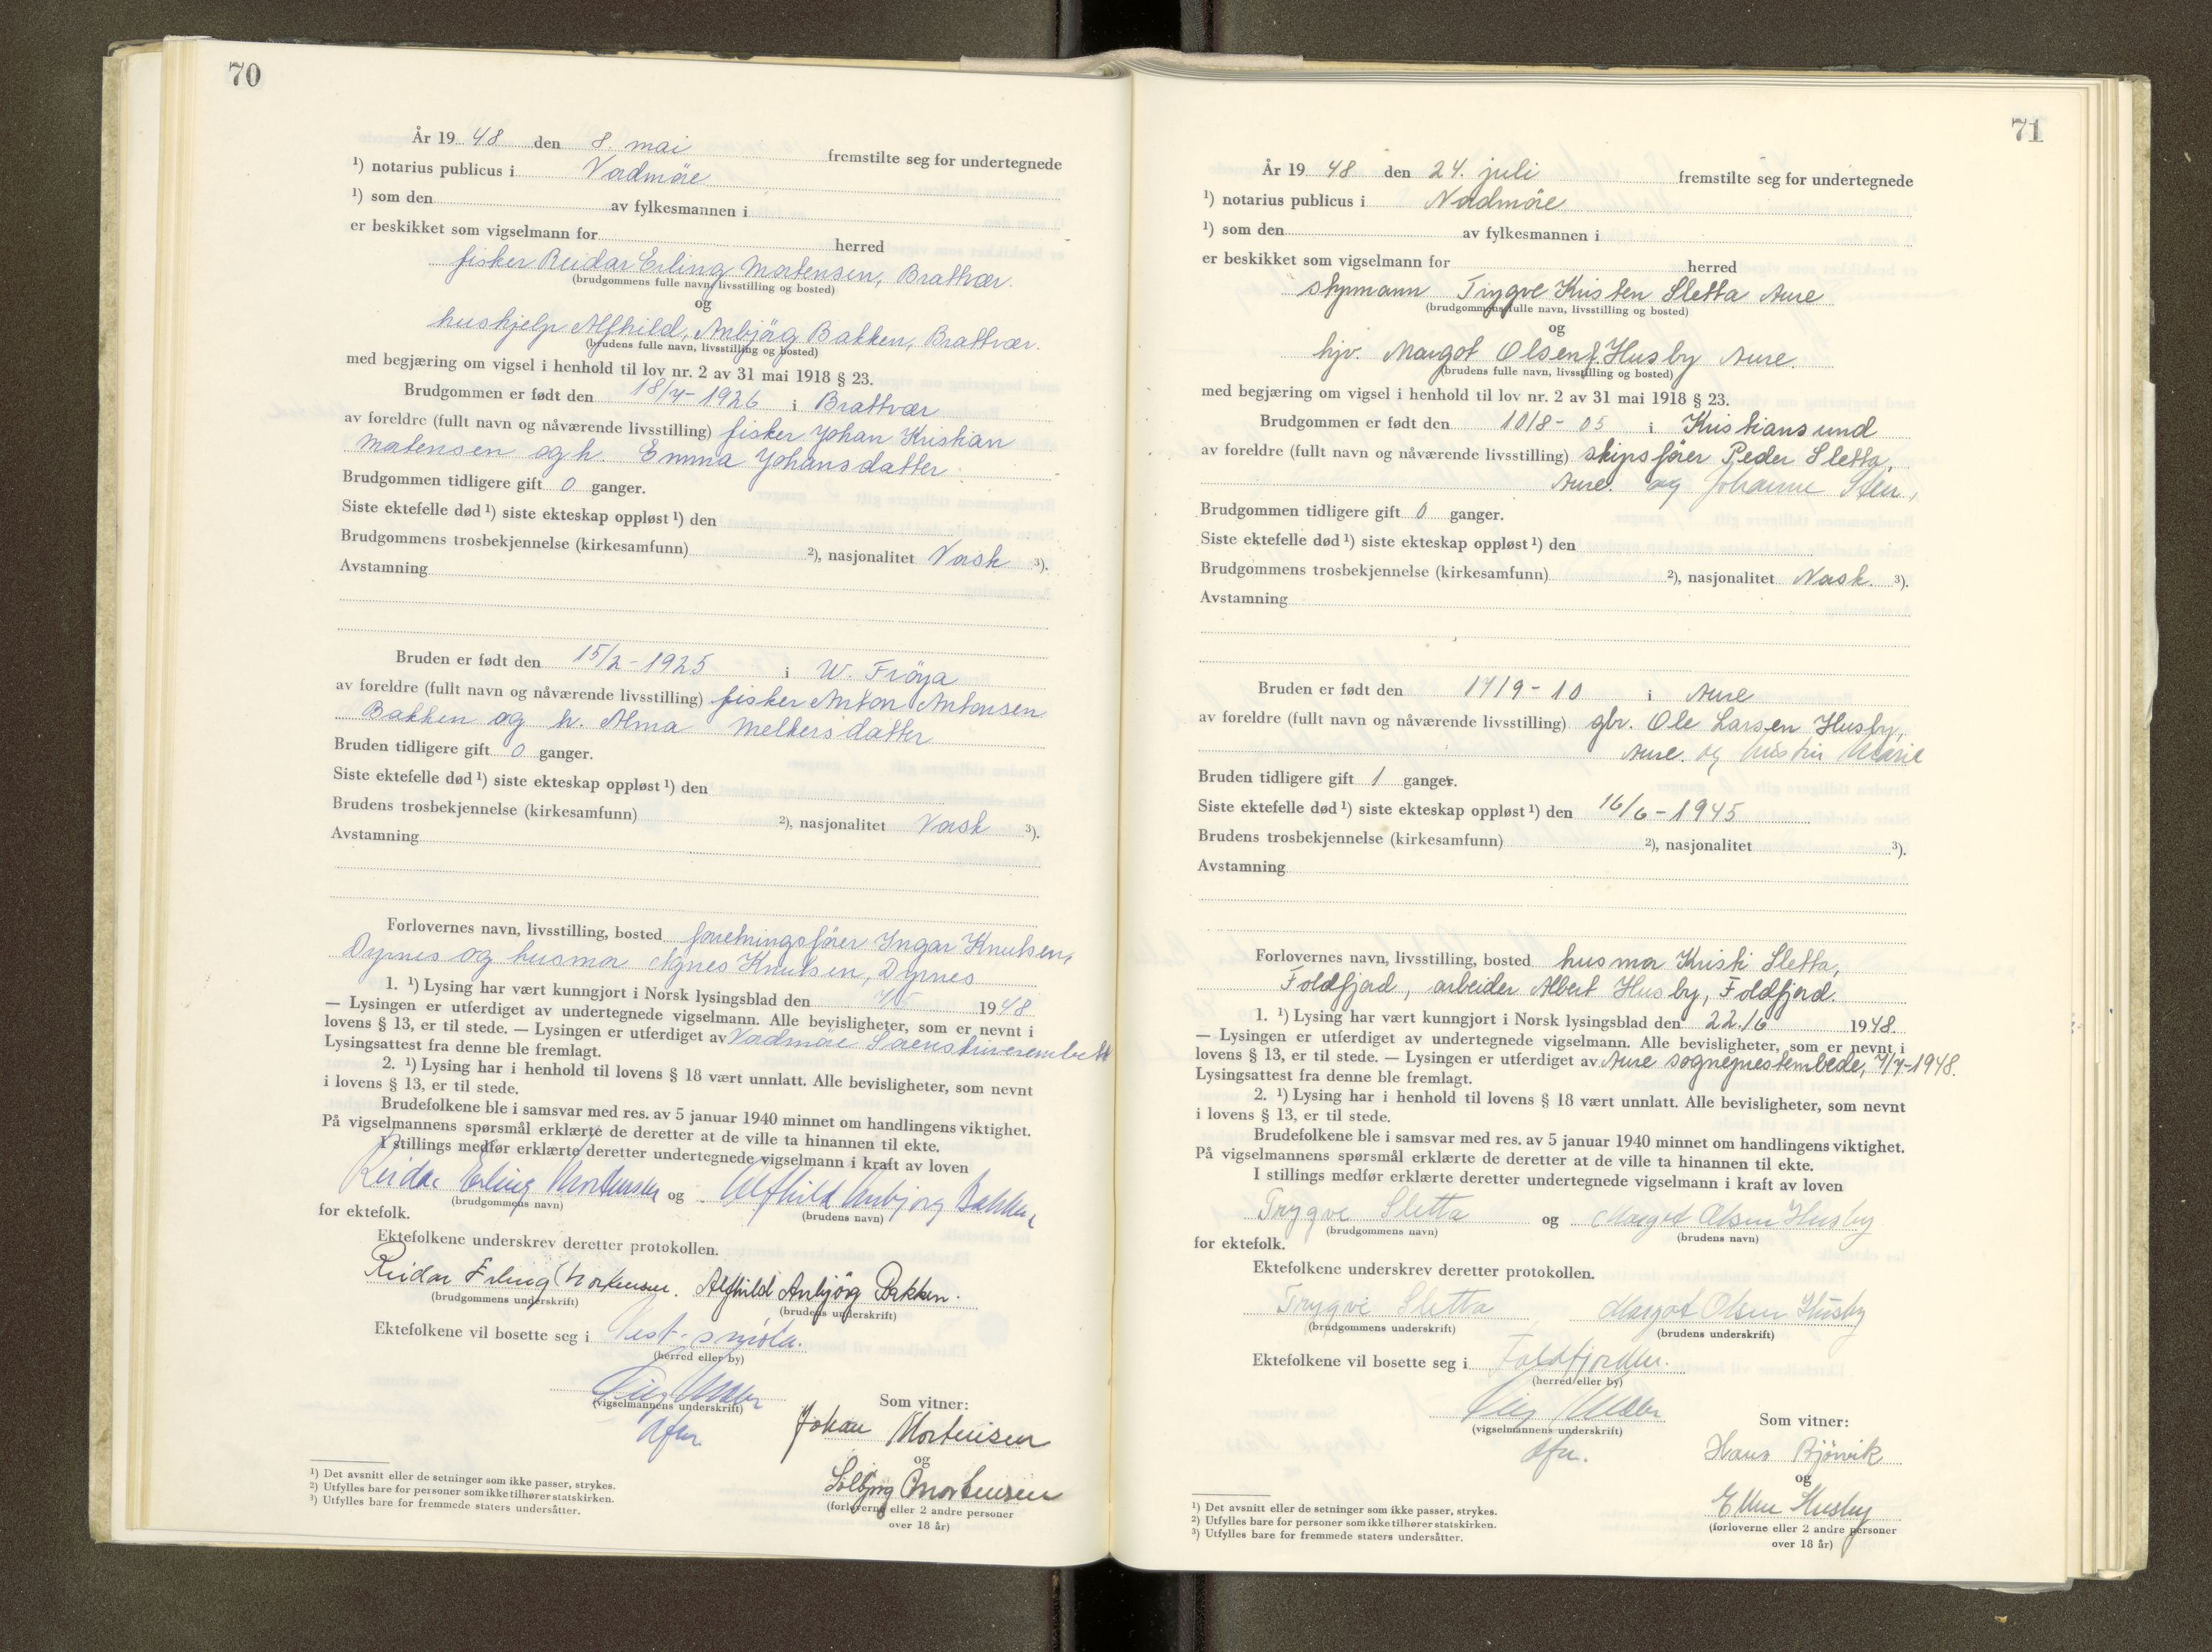 70
År 19 48 den 8. mai fremstilte seg for undertegnede
¹) notarius publicus i Nordmöre
¹) som den av fylkesmannen i
er beskikket som vigselmann for herred
fisker Reidar Erling Mortensen, Brattvær.
(brudgommens fulle navn, livsstilling og bosted)
og
hushjelp Alfhild, Anbjörg Bakken, Brattvær.
(brudens fulle navn, livsstilling og bosted)
med begjæring om vigsel i henhold til lov nr. 2 av 31 mai 1918 § 23.
Brudgommen er født den 18/4-1926 i Brattvær
av foreldre (fullt navn og nåværende livsstilling) fisker Johan Kristian
Mortensen og h. Emma Johansdatter
Brudgommen tidligere gift 0 ganger.
Siste ektefelle død¹) siste ekteskap oppløst¹) den
Brudgommens trosbekjennelse (kirkesamfunn) ²), nasjonalitet Norsk ³).
Avstamning
Bruden er født den 15/2-1925 i N. Fröya
av foreldre (fullt navn og nåværende livsstilling) fisker Anton Antonsen
Bakken og h. Alma Melkersdatter
Bruden tidligere gift 0 ganger.
Siste ektefelle død¹) siste ekteskap oppløst¹) den
Brudens trosbekjennelse (kirkesamfunn) ²), nasjonalitet Norsk ³).
Avstamning
Forlovernes navn, livsstilling, bosted forretningsförer Ingar Knutsen,
Dyrnes og husmor Agnes Knutsen, Dyrnes
1. ¹) Lysing har vært kunngjort i Norsk lysingsblad den 1948
— Lysingen er utferdiget av undertegnede vigselmann. Alle bevisligheter, som er nevnt i
lovens § 13, er til stede. — Lysingen er utferdiget av Nordmöre Sorenskriverembete
Lysingsattest fra denne ble fremlagt.
2. ¹) Lysing har i henhold til lovens § 18 vært unnlatt. Alle bevisligheter, som nevnt
i lovens § 13, er til stede.
Brudefolkene ble i samsvar med res. av 5 januar 1940 minnet om handlingens viktighet.
På vigselmannens spørsmål erklærte de deretter at de ville ta hinannen til ekte.
I stillings medfør erklærte deretter undertegnede vigselmann i kraft av loven
Reidar Erling Mortensen og Alfhild Anbjörg Bakken
(brudgommens navn) (brudens navn)
for ektefolk.
Ektefolkene underskrev deretter protokollen.
Reidar Erling Mortensen. Alfhild Anbjörg Bakken.
(brudgommens underskrift) (brudens underskrift)
Ektefolkene vil bosette seg i Vest-smöla.
(herred eller by)
(vigselmannens underskrift)
Som vitner:
Johan Mortensen
og
Solbjörg Mortensen
(forloverne eller 2 andre personer
over 18 år)
¹) Det avsnitt eller de setninger som ikke passer, strykes.
²) Utfylles bare for personer som ikke tilhører statskirken.
³) Utfylles bare for fremmede staters undersåtter.
71
År 19 48 den 24. juli fremstilte seg for undertegnede
¹) notarius publicus i Nordmöre
¹) som den av fylkesmannen i
er beskikket som vigselmann for herred
styrmann Trygve Kristen Sletta Aure
(brudgommens fulle navn, livsstilling og bosted)
og
hjv. Margot Olsen f. Husby Aure.
(brudens fulle navn, livsstilling og bosted)
med begjæring om vigsel i henhold til lov nr. 2 av 31 mai 1918 § 23.
Brudgommen er født den 10/8-05 i Kristiansund
av foreldre (fullt navn og nåværende livsstilling) skipsförer Peder Sletta,
Aure. og Johanne
Brudgommen tidligere gift 0 ganger.
Siste ektefelle død¹) siste ekteskap oppløst¹) den
Brudgommens trosbekjennelse (kirkesamfunn) ²), nasjonalitet Norsk. ³).
Avstamning
Bruden er født den 17/9-10 i Aure
av foreldre (fullt navn og nåværende livsstilling) gbr. Ole Larsen Husby,
Aure. og Marie
Bruden tidligere gift 1 ganger.
Siste ektefelle død¹) siste ekteskap oppløst¹) den 16/6-1945
Brudens trosbekjennelse (kirkesamfunn) ²), nasjonalitet ³).
Avstamning
Forlovernes navn, livsstilling, bosted husmor Kristi Sletta,
Foldfjord, arbeider Albert Husby, Foldfjord.
1. ¹) Lysing har vært kunngjort i Norsk lysingsblad den 22./6 1948.
— Lysingen er utferdiget av undertegnede vigselmann. Alle bevisligheter, som er nevnt i
lovens § 13, er til stede. — Lysingen er utferdiget av Aure sogneprestembede, 7/7-1948.
Lysingsattest fra denne ble fremlagt.
2. ¹) Lysing har i henhold til lovens § 18 vært unnlatt. Alle bevisligheter, som nevnt
i lovens § 13, er til stede.
Brudefolkene ble i samsvar med res. av 5 januar 1940 minnet om handlingens viktighet.
På vigselmannens spørsmål erklærte de deretter at de ville ta hinannen til ekte.
I stillings medfør erklærte deretter undertegnede vigselmann i kraft av loven
Trygve Sletta og Margot Olsen Husby
(brudgommens navn) (brudens navn)
for ektefolk.
Ektefolkene underskrev deretter protokollen.
Trygve Sletta Margot Olsen Husby
(brudgommens underskrift) (brudens underskrift)
Ektefolkene vil bosette seg i Foldfjorden.
(herred eller by)
(vigselmannens underskrift)
Som vitner:
Hans Bjørvik
og
Ellen Husby
(forloverne eller 2 andre personer
over 18 år)
¹) Det avsnitt eller de setninger som ikke passer, strykes.
²) Utfylles bare for personer som ikke tilhører statskirken.
³) Utfylles bare for fremmede staters undersåtter.